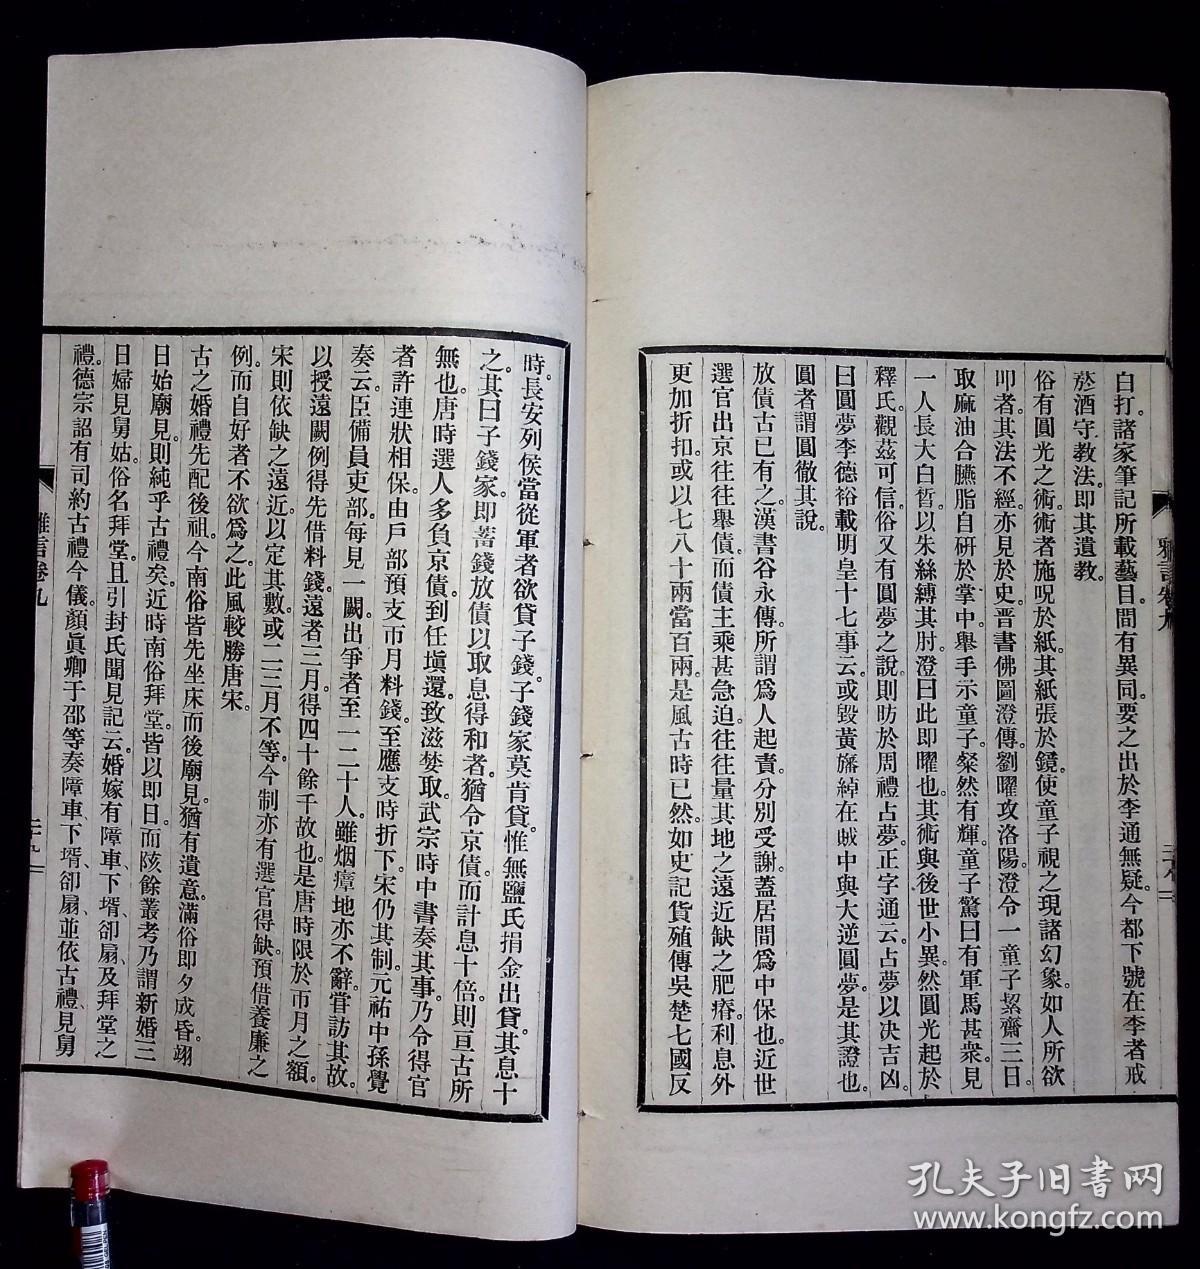 白打。諸家筆記所載藝目。間有異同。要之出於李通無疑。今都下號在李者戒
菸酒守教法。即其遺教。
俗有圓光之術。術者施呪於紙。其紙張於鏡。使童子視之。現諸幻象。如人所欲
叩者。其法不經。亦見於史。晉書佛圖澄傳。劉曜攻洛陽。澄令一童子絜齋三日。
取麻油合臙脂。自研於掌中。舉手示童子。粲然有輝。童子驚曰。有軍馬甚衆。見
一人長大白皙。以朱絲縛其肘。澄曰。此即曜也。其術與後世小異。然圓光起於
釋氏。觀茲可信。俗又有圓夢之說。則昉於周禮占夢。正字通云。占夢以決吉凶
曰圓夢。李德裕載明皇十七事云。或毀黃旛綽在賊中。與大逆圓夢。是其證也。
圓者謂圓徹其說。
放債古已有之。漢書谷永傳。所謂爲人起責。分別受謝。蓋居間爲中保也。近世
選官出京。往往舉債。而債主乘甚急迫。往往量其地之遠近。缺之肥瘠。利息外
更加折扣。或以七八十兩當百兩。是風古時已然。如史記貨殖傳。吳楚七國反
時。長安列侯當從軍者。欲貸子錢。子錢家莫肯貸。惟無鹽氏捐金出貸。其息十
之。其曰子錢家。即蓄錢放債以取息得和者。猶今京債。而計息十倍。則亘古所
無也。唐時選人多負京債。到任塡還。致滋婪取。武宗時中書奏其事。乃令得官
者許連狀相保。由戶部預支巿月料錢。至應支時折下。宋仍其制。元祐中孫覺
奏云。臣備員吏部。每見一闕出。爭者至一二十人。雖烟瘴地亦不辭。嘗訪其故。
以授遠闕例得先借料錢。遠者三月。得四十餘千故也。是唐時限於巿月之額。
宋則依缺之遠近。以定其數。或二三月不等。今制亦有選官得缺。預借養廉之
例。而自好者不欲爲之。此風較勝唐宋。
古之婚禮。先配後祖。今南俗皆先坐床而後廟見。猶有遺意。滿俗即夕成昏。翊
日始廟見。則純乎古禮矣。近時南俗拜堂。皆以即日。而陔餘叢考乃謂新婚三
日。婦見舅姑。俗名拜堂。且引封氏聞見記云。婚嫁有障車、下壻、卻扇、及拜堂之
禮。德宗詔有司約古禮今儀。顏眞卿于邵等奏障車、下壻、卻扇、並依古禮見舅
雅言卷九
二十九
孔夫子旧书网
www.kongfz.com